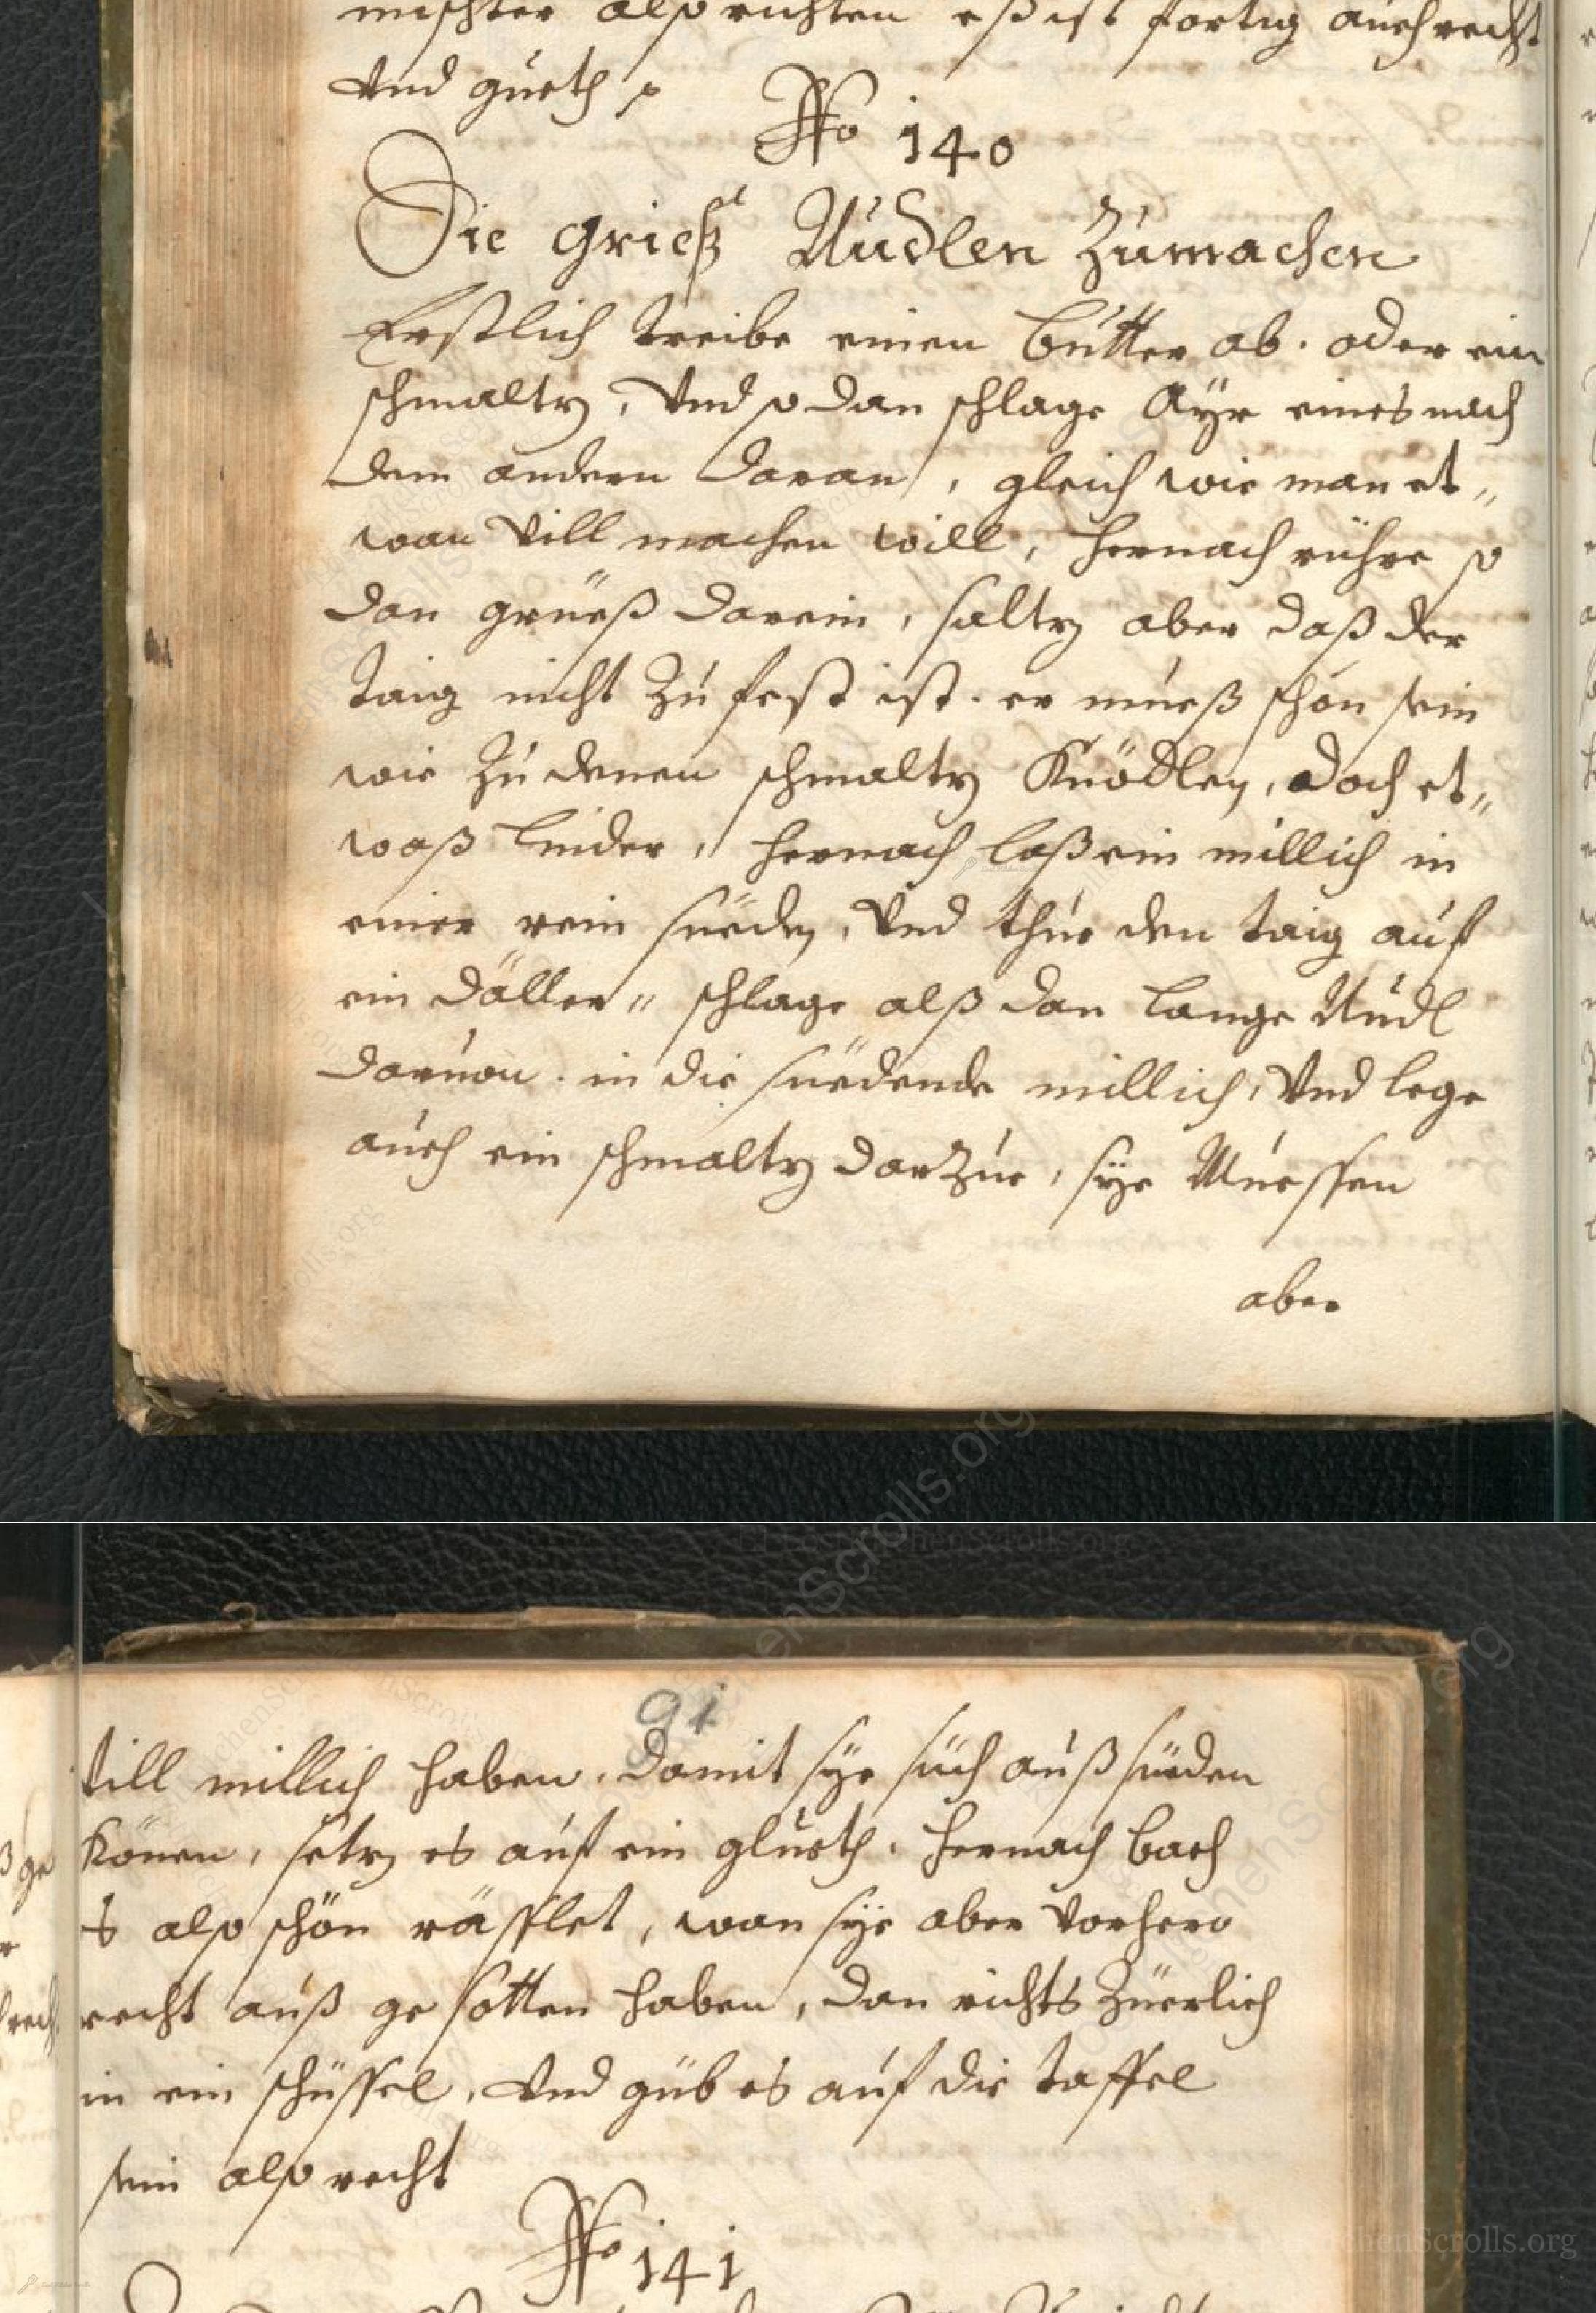 mischter also richten es ist fertig auch recht
Vnd gueth
No 140
Die grieß Nudlen Zumachen
Erstlich treibe einen butter ab. oder ein
schmaltz, Vnd so dan schlage Ayr eines nach
dem andern daran, gleich wie man et„
wan Vill machen will, hernach rühre so
dan grüeß darein, saltz aber daß der
taig nicht Zu fest ist. er mueß schon sein
wie Zu denen schmaltz Knödlen, doch et„
waß linder, hernach laß ein millich in
einer rein süeden, Vnd thue den taig auf
ein däller„ schlage alß dan lange Nudl
daruon. in die süedende millich, Vnd lege
auch ein schmaltz darZue, sye Muessen
aber
91
Vill millich haben. damit sye sich auß süeden
Könen, setz es auf ein glueth. hernach bach
s also schön räfflet, wan sye aber Vorhero
recht auß gesotten haben, dan richts Züerlich
in ein schüssel, Vnd güb es auf die taffel
sein also recht
No 141